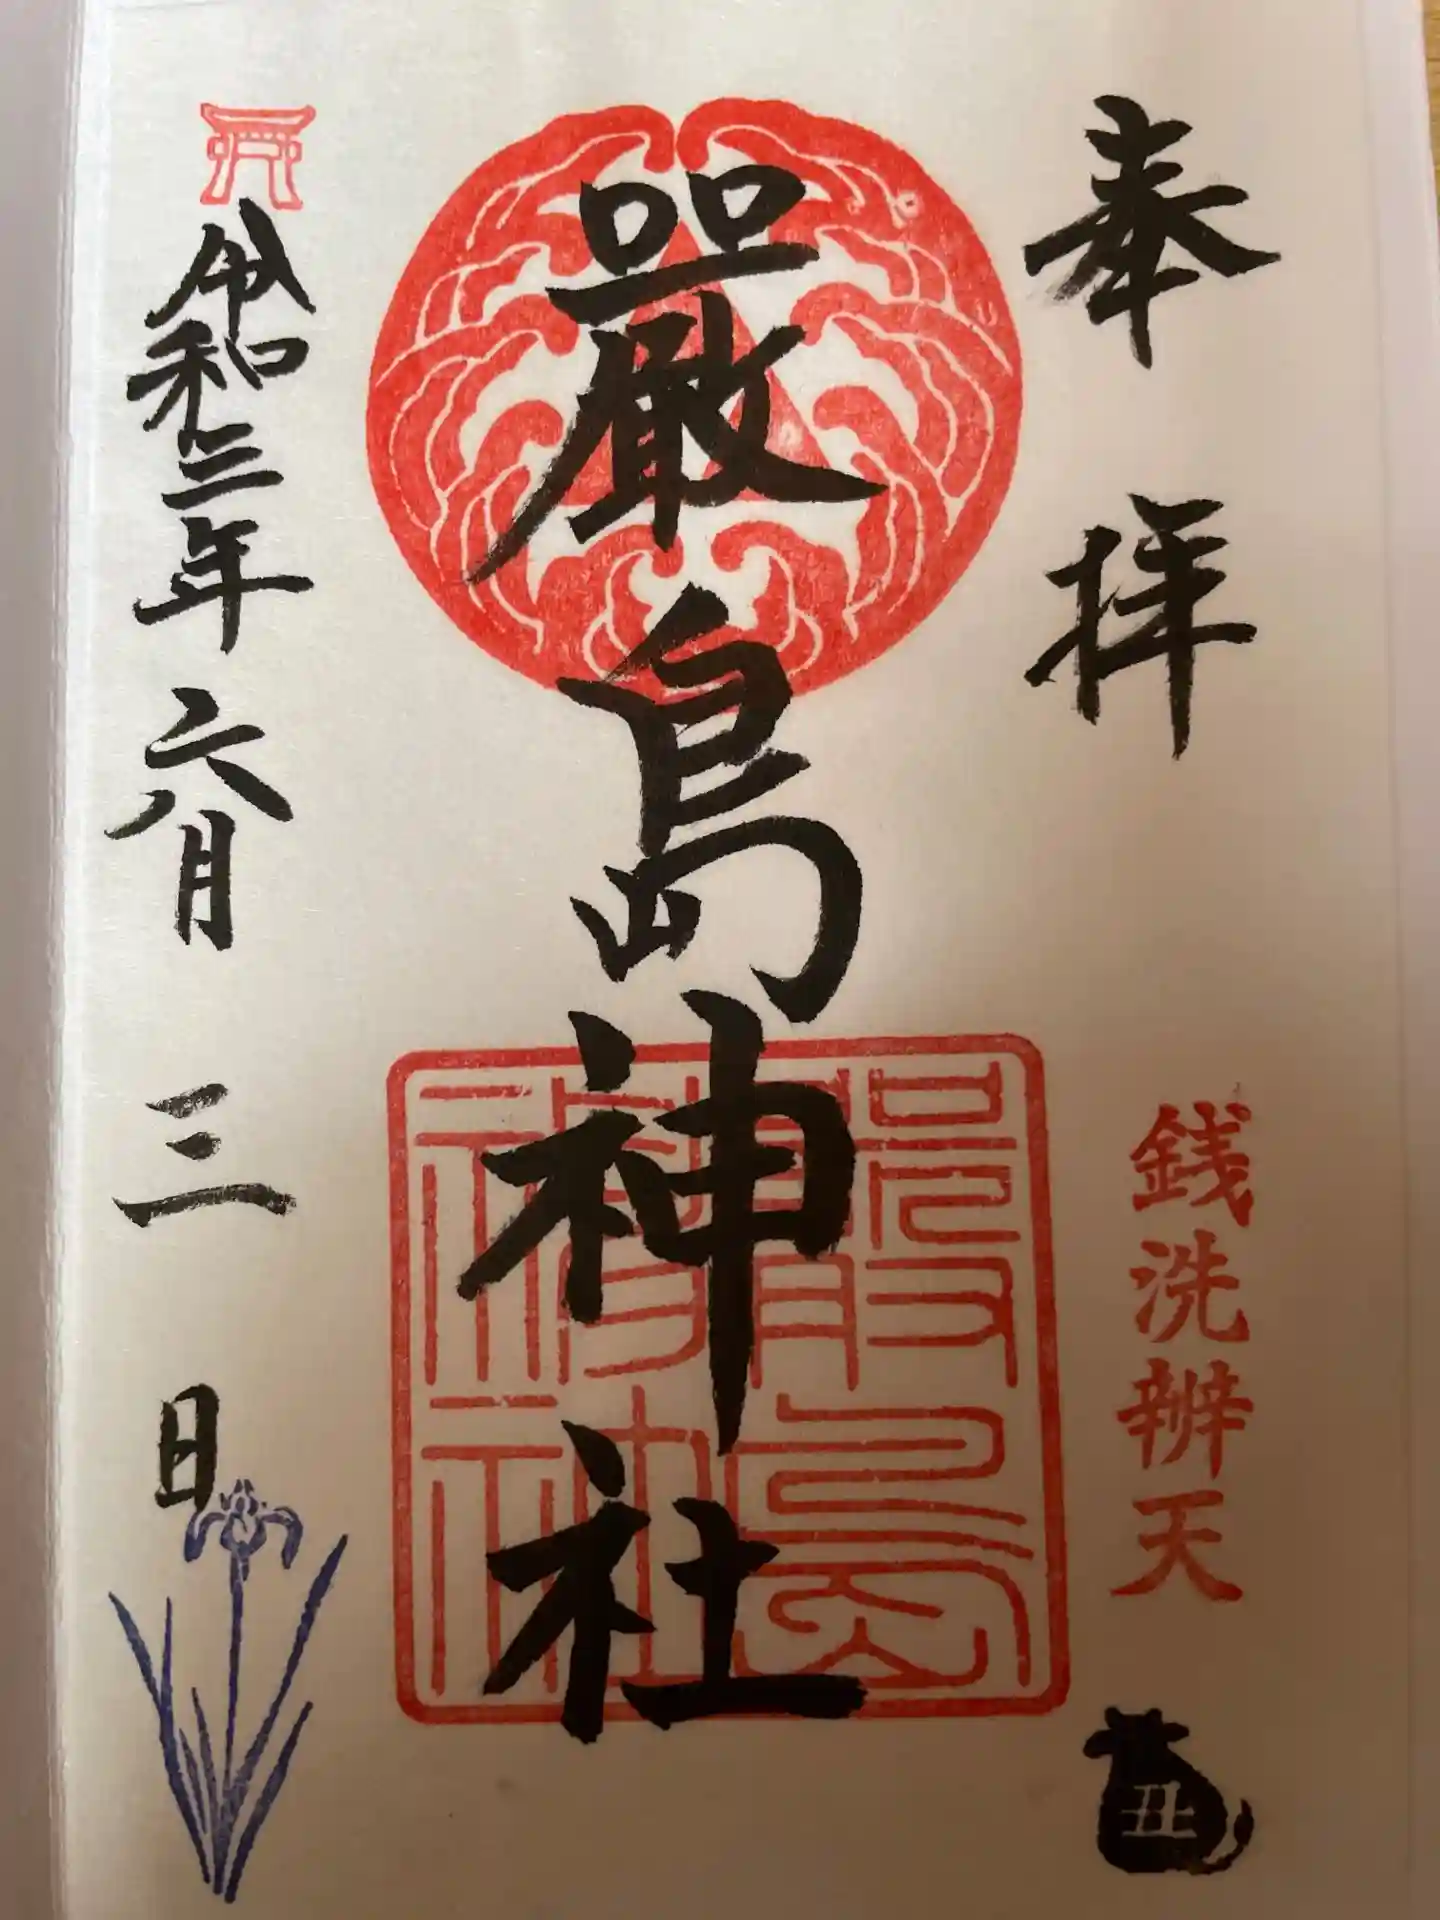 奉拝
銭洗辨天
丑
嚴島神社
嚴島神社
令和三年六月三日